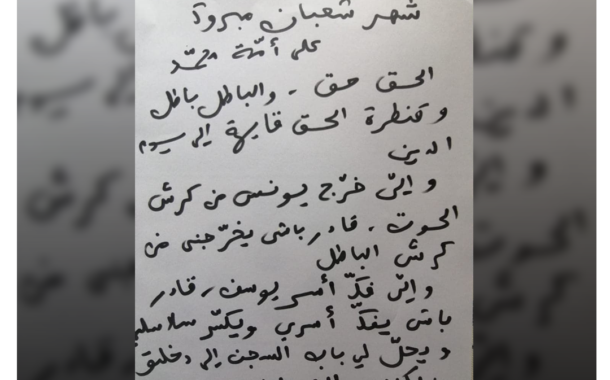 شهر شعبان مبروك
على أمّة محمّد
الحق حق، والباطل باطل
و قنطرة الحق قايمة إلى يوم
الدين
و إلّي خرّج يونس من كرش
الحوت، قادر باش يخرّجني من
كرش الباطل
و إلّي فكّ أسر يوسف، قادر
باش يفكّ أسري ويكسّر سلاسلي
و يحلّ لي باب السجن إلى دخلتو